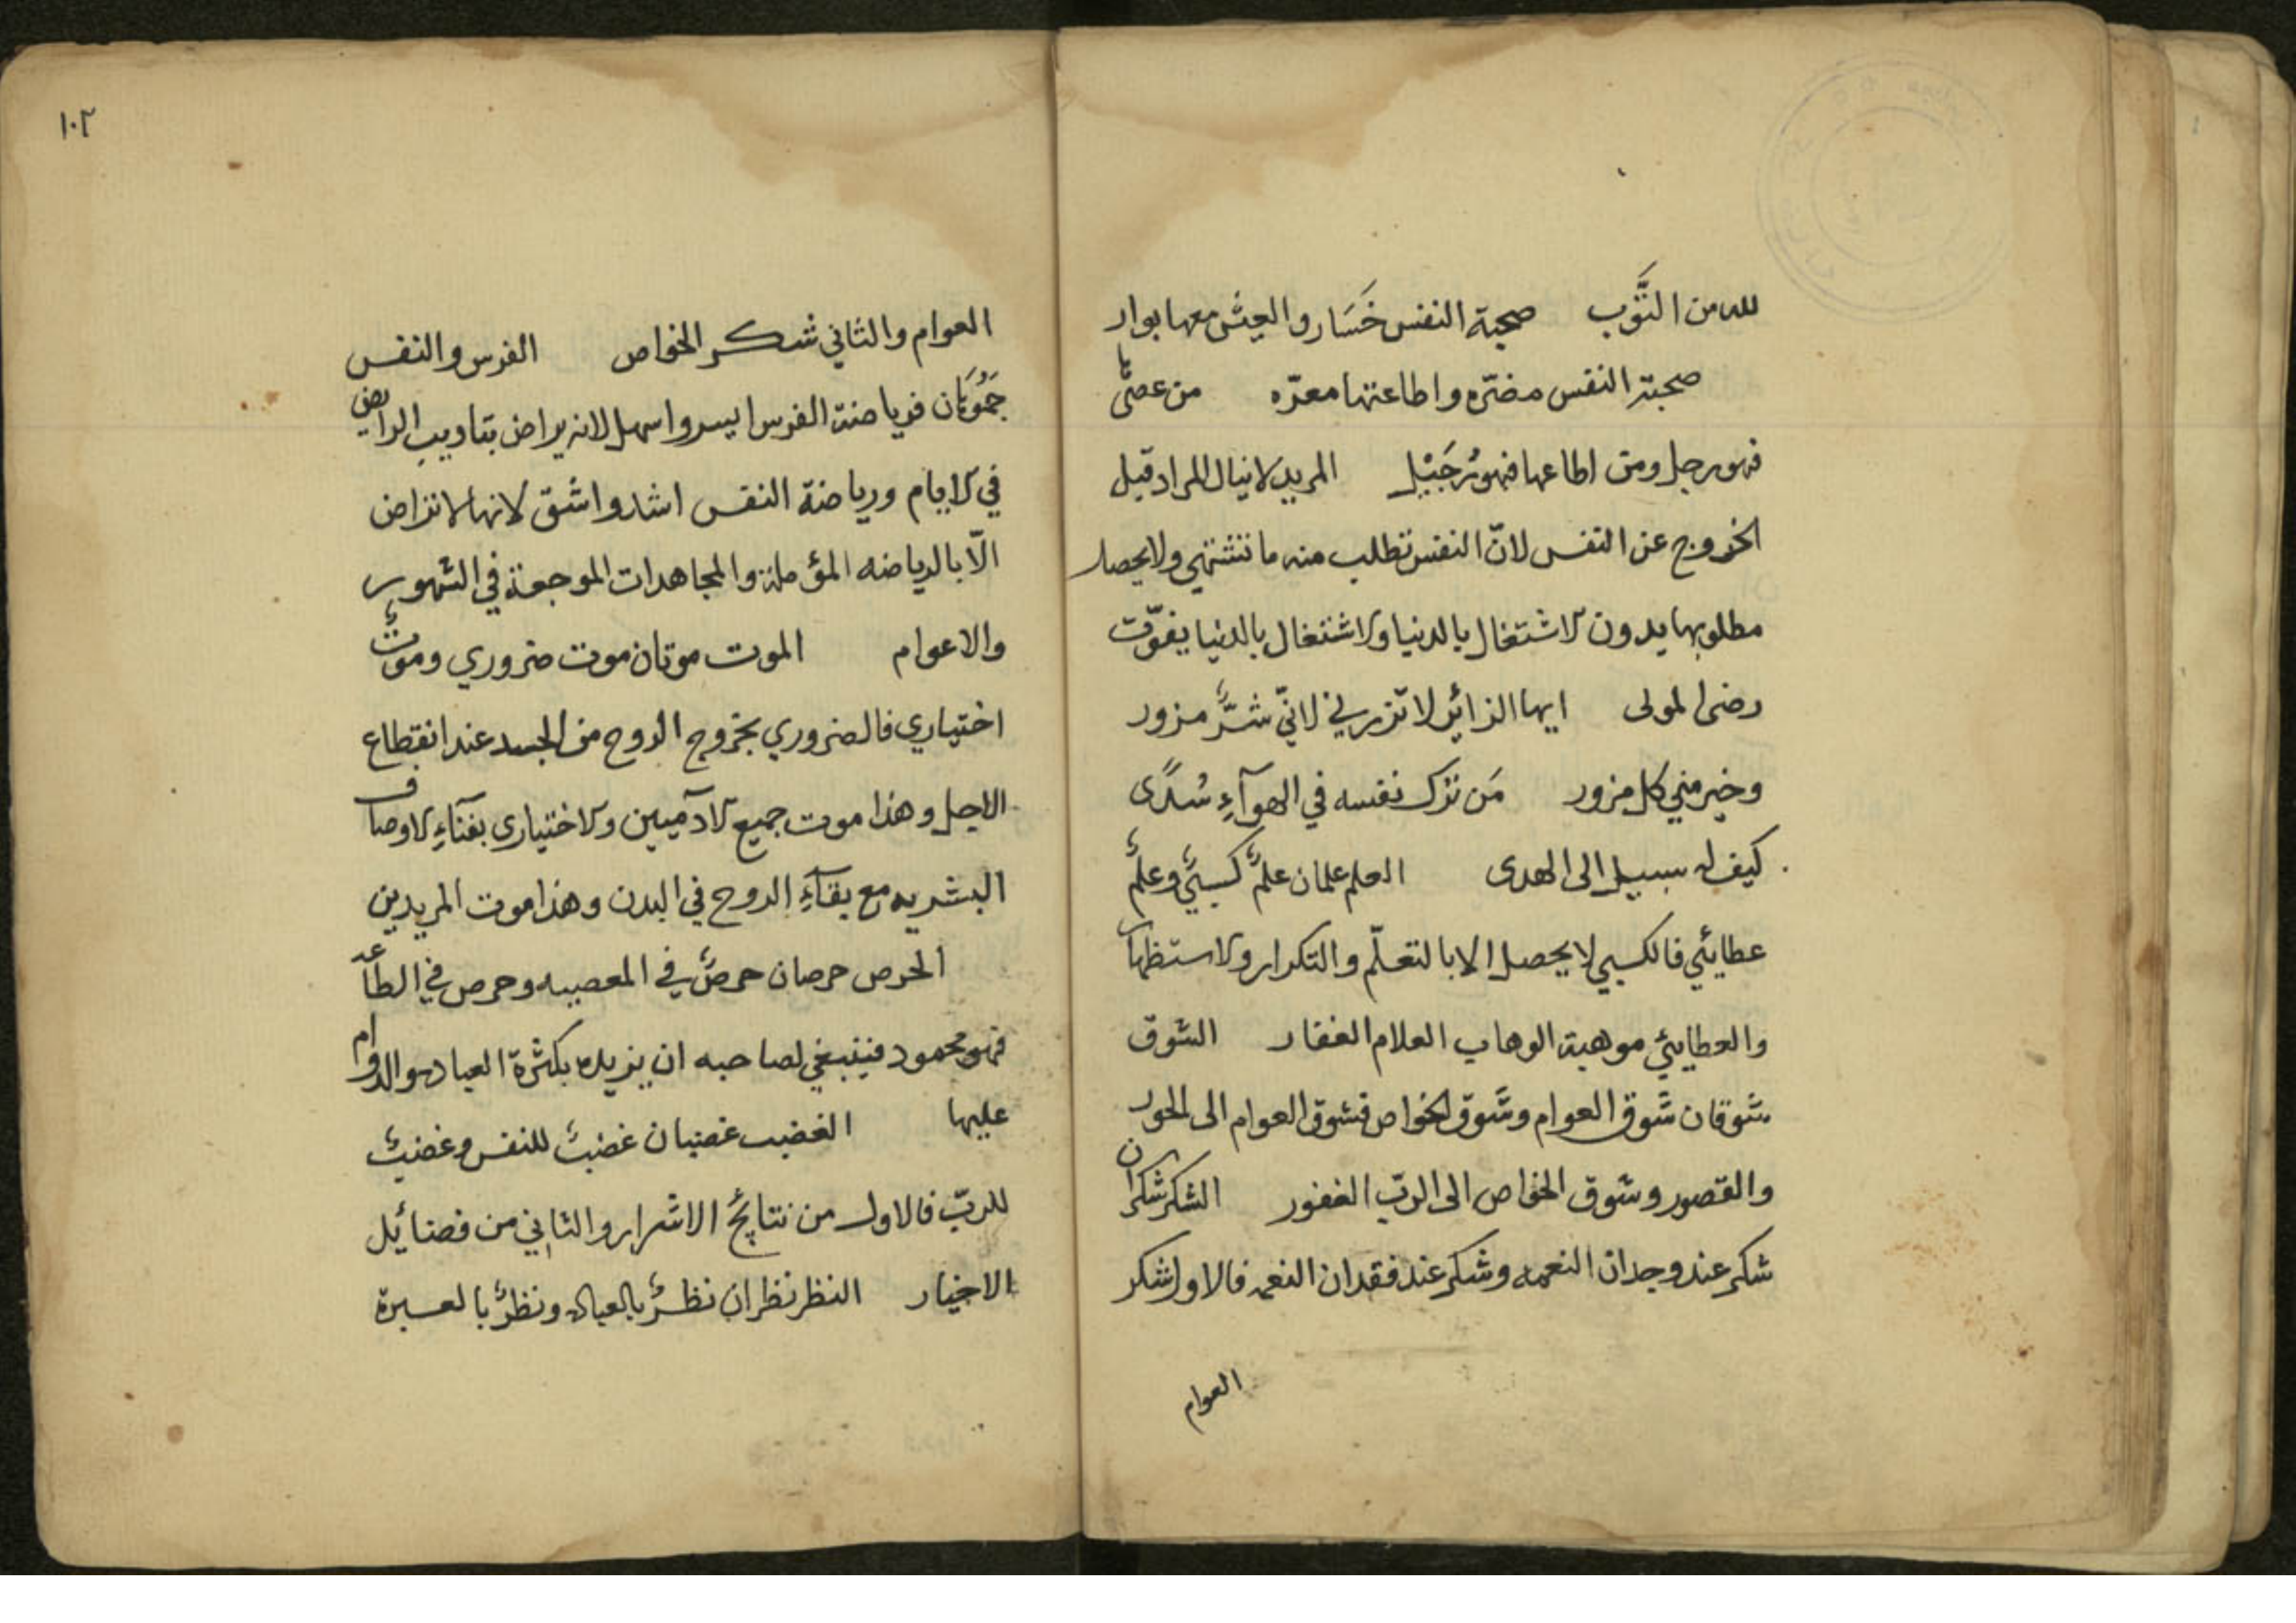 لله من التَّوْب صحبة النفس خَسَار والعيش معها بوار
صحبة النفس مضرّه واطاعتها معرّه من عصىٰها
فهو رجل ومن اطاعها فهو رُجَيْل المريد لا ينال المراد قبل
الخروج عن النفس لانّ النفس تطلب منه ما تشتهي ولا يحصل
مطلوبها بدون الاشتغال بالدنيا والاشتغال بالدنيا يفوّت
رضى المولى ايها الزائر لا تزرني لانّي شرٌّ مزور
وخير مني كل مزور مَن ترك نفسه في الهوآءِ سُدًى
كيف له سبيل الى الهدى العلم علمان علمٌ كسبيٌّ وعلمٌ
عطايئي فالكسبي لا يحصل الا بالتعلّم والتكرار والاستظهار
والعطايئي موهبة الوهاب العلام الغفار الشوق
شوقان شوق العوام وشوق الخواص فشوق العوام الى الحور
والقصور وشوق الخواص الى الربّ الغفور الشكر شكران
شكر عند وجدان النعمه وشكر عند فقدان النعمه فالاول شكر
العوام
١٠٢
العوام والثاني شكر الخواص الفرس والنفس
جَمُوحَان فرياضة الفرس ايسر واسهل لانه يراض بتاديب الرايض
في الايام ورياضة النفس اشد واشق لانها لا تراض
الّا بالرياضه المؤلمة والمجاهدات الموجعة في الشهور
والاعوام الموت موتان موت ضروري وموتٌ
اختياري فالضروري بخروج الروح من الجسد عند انقطاع
الاجل وهذا موت جميع الآدميين والاختياري بفنآءِ الاوصاف
البشريه مع بقآءِ الروح في البدن وهذا موت المريدين
الحرص حرصان حرصٌ في المعصيه وحرص في الطاعه
فهو محمود فينبغي لصاحبه ان يزيده بكثرة العباده والدوام
عليها الغضب غضبان غضبٌ للنفس وغضبٌ
للربّ فالاول من نتايج الاشرار والثاني من فضائل
الاخيار النظر نظران نظرٌ بالعباده ونظرٌ بالعبرة